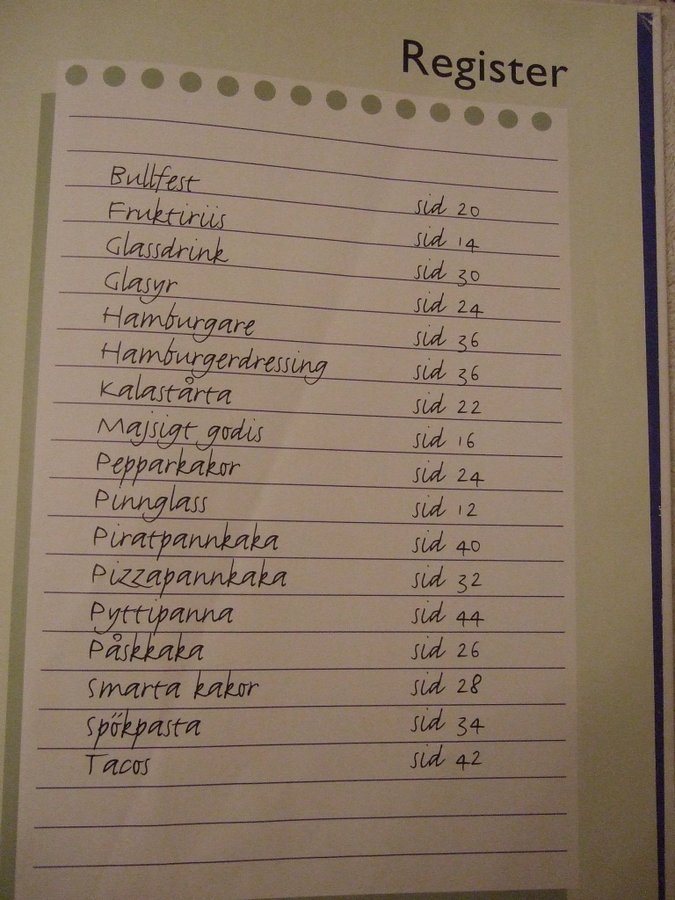 Register
Bullfest sid 20
Fruktiriis sid 14
Glassdrink sid 30
Glasyr sid 24
Hamburgare sid 36
Hamburgerdressing sid 36
Kalastårta sid 22
Majsigt godis sid 16
Pepparkakor sid 24
Pinnglass sid 12
Piratpannkaka sid 40
Pizzapannkaka sid 32
Pyttipanna sid 44
Påskkaka sid 26
Smarta kakor sid 28
Spökpasta sid 34
Tacos sid 42